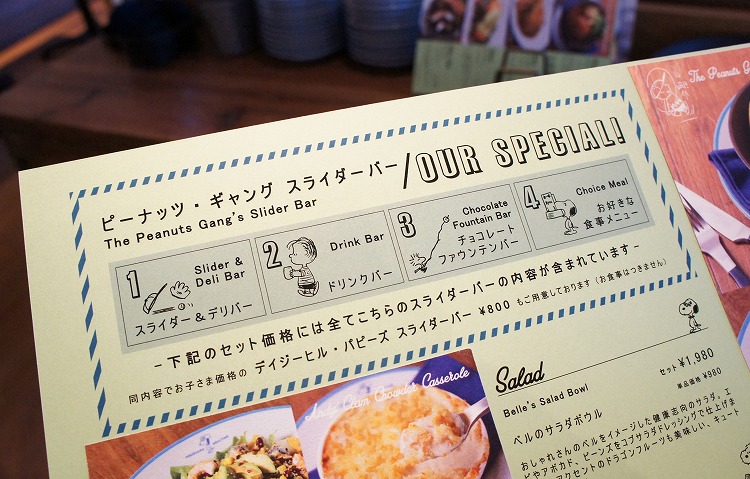 ピーナッツ・ギャング スライダーバー/OUR SPECIAL!
The Peanuts Gang's Slider Bar
1 Slider &
Deli Bar
スライダー&デリバー
2 Drink Bar
ドリンクバー
3 Chocolate
Fountain Bar
チョコレート
ファウンテンバー
4 Choice Meal
お好きな
食事メニュー
-下記のセット価格には全てこちらのスライダーバーの内容が含まれています-
同内容でお子さま価格の デイジーヒル・パピーズ スライダーバー ¥800 もご用意しております(お食事はつきません)
Salad
セット¥1,980
Belle's Salad Bowl
単品価格 ¥980
ベルのサラダボウル
おしゃれさんのベルをイメージした健康志向のサラダ。エ
ビやアボカド、ビーンズをコブサラダドレッシングで仕上げま
アクセントのドラゴンフルーツも美味しい、キュート
Andy' Clam Chowder Casserole
The Peanuts G